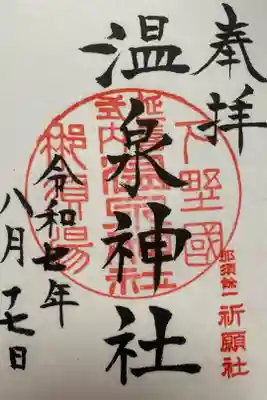 奉拝
下野國
延喜式内
温泉神社
那須湯
那須餘一 祈願社
令和七年
八月十七日